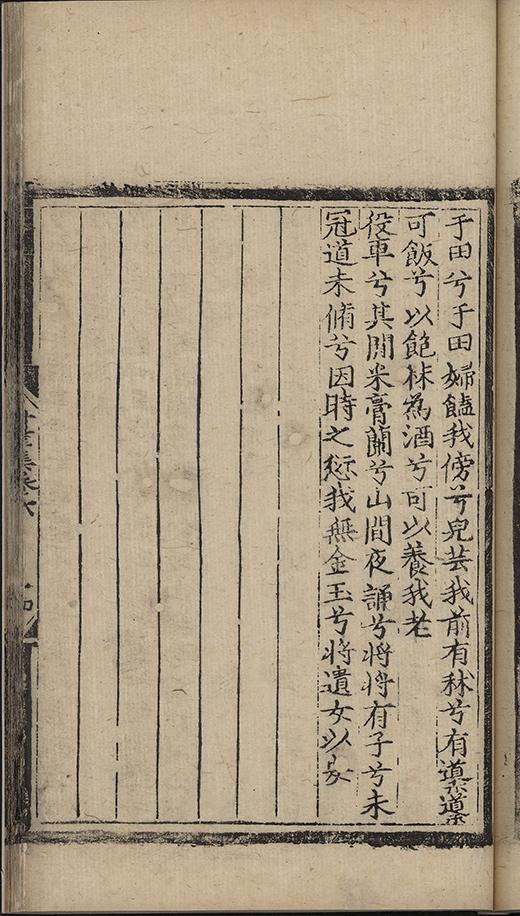 于田兮于田婦饁我傍兮兒芸我前有秫兮有䆃䆃
可飯兮以飽秫為酒兮可以養我老
役車兮其閒米膏蘭兮山間夜誦兮將將有子兮未
冠道未脩兮因時之愆我無金玉兮將遺女以安
集卷六